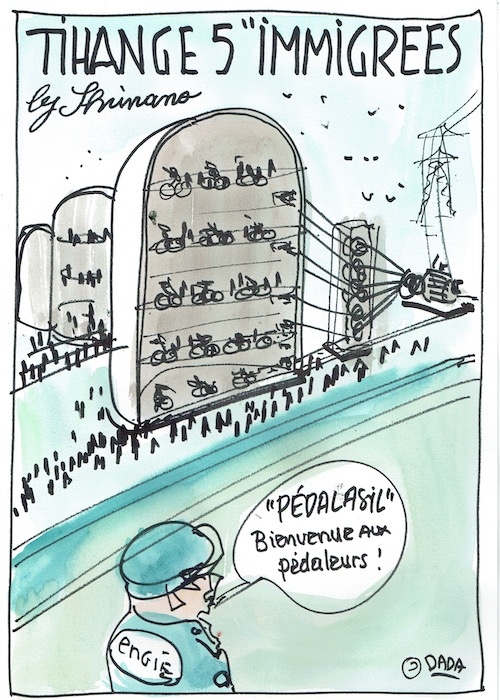 TIHANGE 5 "IMMIGREES
by Shinano
"PÉDALASIL"
Bienvenue AUX
pédaleurs !
ENGIE
DADA